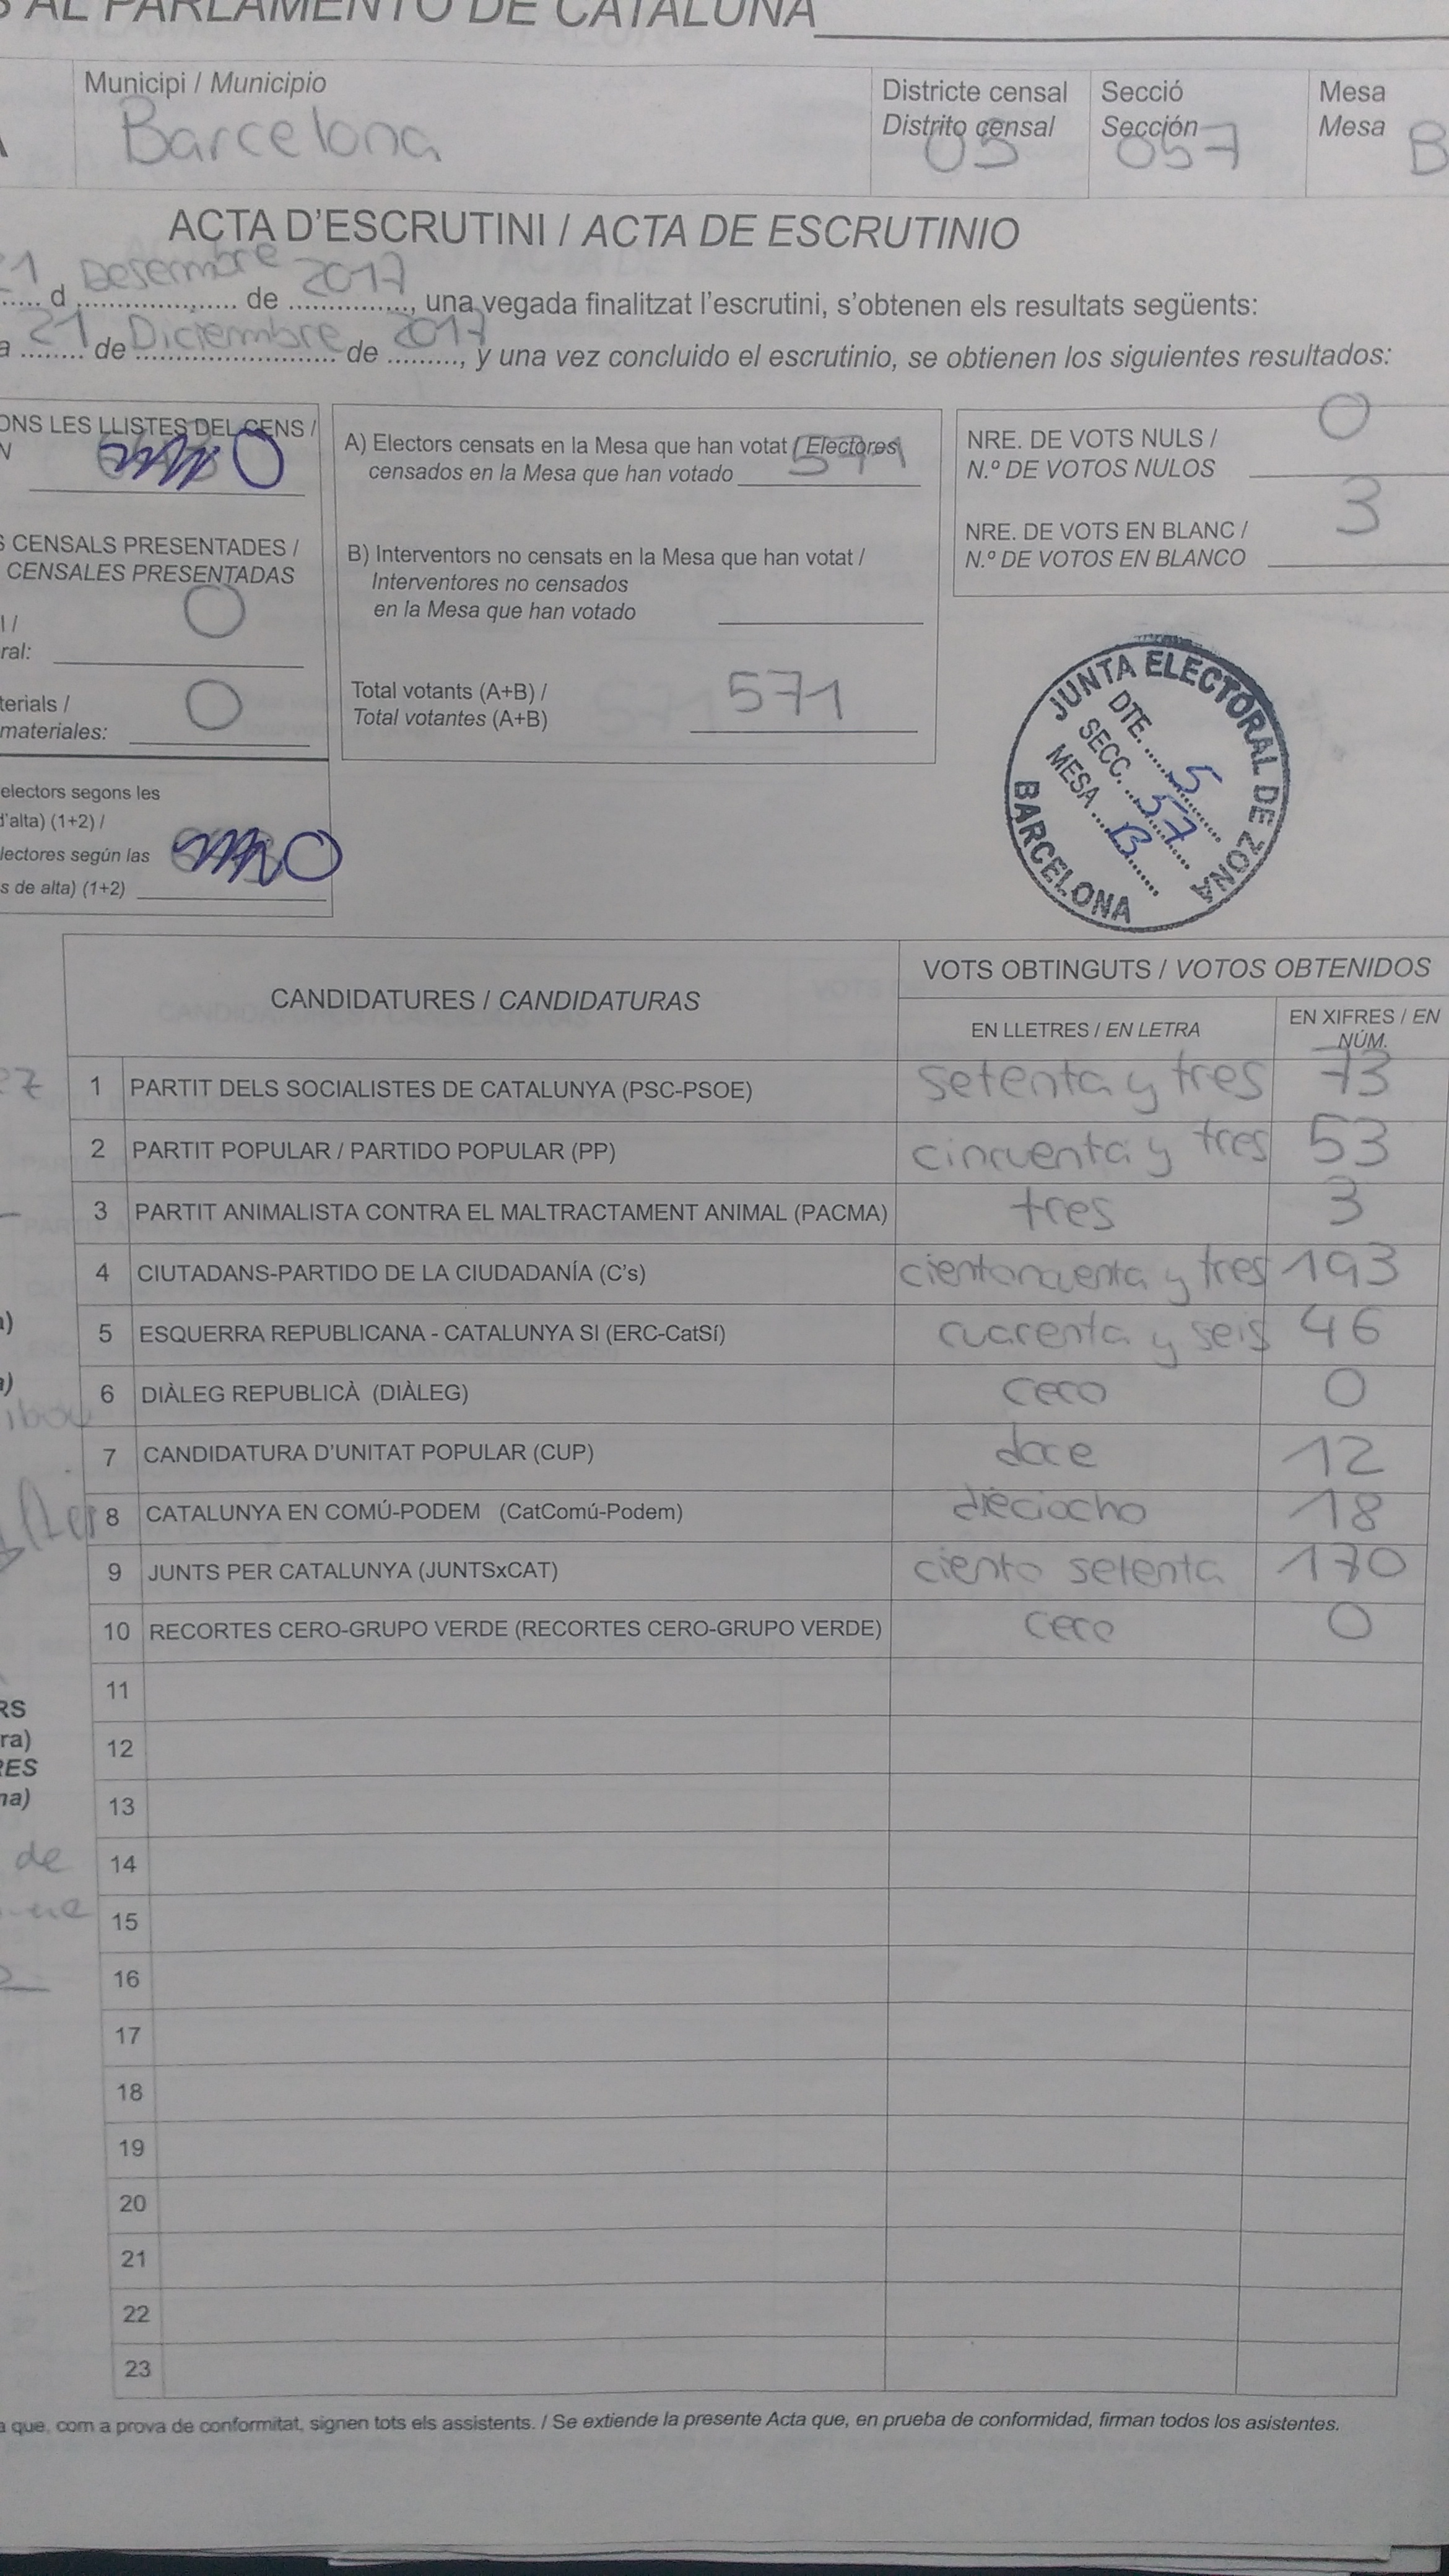 AL PARLAMENTO DE CATALUÑA
Municipi / Municipio
Barcelona
Districte censal
Distrito censal
05
Secció
Sección
057
Mesa
Mesa
B
ACTA D'ESCRUTINI / ACTA DE ESCRUTINIO
21 d Desembre de 2017, una vegada finalitzat l'escrutini, s'obtenen els resultats següents:
a 21 de Diciembre de 2017, y una vez concluido el escrutinio, se obtienen los siguientes resultados:
ONS LES LLISTES DEL CENS /
N
0
S CENSALS PRESENTADES /
CENSALES PRESENTADAS
0
l /
ral:
terials /
0
materiales:
electors segons les
d'alta) (1+2) /
lectores según las
0
s de alta) (1+2)
A) Electors censats en la Mesa que han votat / Electores
censados en la Mesa que han votado 571
B) Interventors no censats en la Mesa que han votat /
Interventores no censados
en la Mesa que han votado
Total votants (A+B) /
Total votantes (A+B)
571
NRE. DE VOTS NULS /
N.º DE VOTOS NULOS
0
NRE. DE VOTS EN BLANC /
N.º DE VOTOS EN BLANCO
3
JUNTA ELECTORAL DE ZONA
DTE. 5
SECC. 57
MESA B
BARCELONA
CANDIDATURES / CANDIDATURAS
VOTS OBTINGUTS / VOTOS OBTENIDOS
EN LLETRES / EN LETRA
EN XIFRES / EN
NÚM.
1 PARTIT DELS SOCIALISTES DE CATALUNYA (PSC-PSOE) setenta y tres 73
2 PARTIT POPULAR / PARTIDO POPULAR (PP) cincuenta y tres 53
3 PARTIT ANIMALISTA CONTRA EL MALTRACTAMENT ANIMAL (PACMA) tres 3
4 CIUTADANS-PARTIDO DE LA CIUDADANÍA (C's) y tres 193
5 ESQUERRA REPUBLICANA - CATALUNYA SI (ERC-CatSí) cuarenta y seis 46
6 DIÀLEG REPUBLICÀ (DIÀLEG) cero 0
7 CANDIDATURA D'UNITAT POPULAR (CUP) doce 12
8 CATALUNYA EN COMÚ-PODEM (CatComú-Podem) dieciocho 18
9 JUNTS PER CATALUNYA (JUNTSxCAT) ciento setenta 170
10 RECORTES CERO-GRUPO VERDE (RECORTES CERO-GRUPO VERDE) cero 0
11
12
13
14
15
16
17
18
19
20
21
22
23
RS
ra)
RES
na)
de
a que, com a prova de conformitat, signen tots els assistents. / Se extiende la presente Acta que, en prueba de conformidad, firman todos los asistentes.